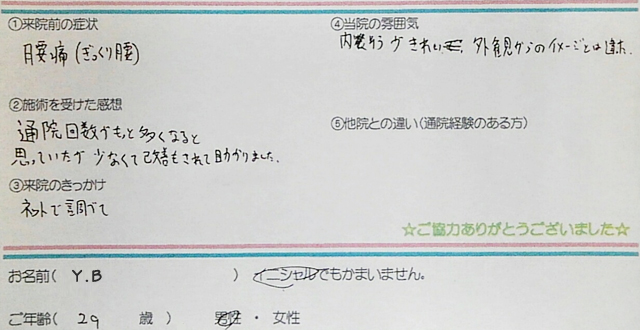 ①来院前の症状
腰痛(ぎっくり腰)
②施術を受けた感想
通院回数がもっと多くなると
思っていたが少なくて改善もされて助かりました。
③来院のきっかけ
ネットで調べて
④当院の雰囲気
内装が きれいで、外観からのイメージとは違った.
⑤他院との違い(通院経験のある方)
☆ご協力ありがとうございました☆
お名前( Y.B ) イニシャルでもかまいません。
ご年齢( 29 歳 ) 男性 ・ 女性